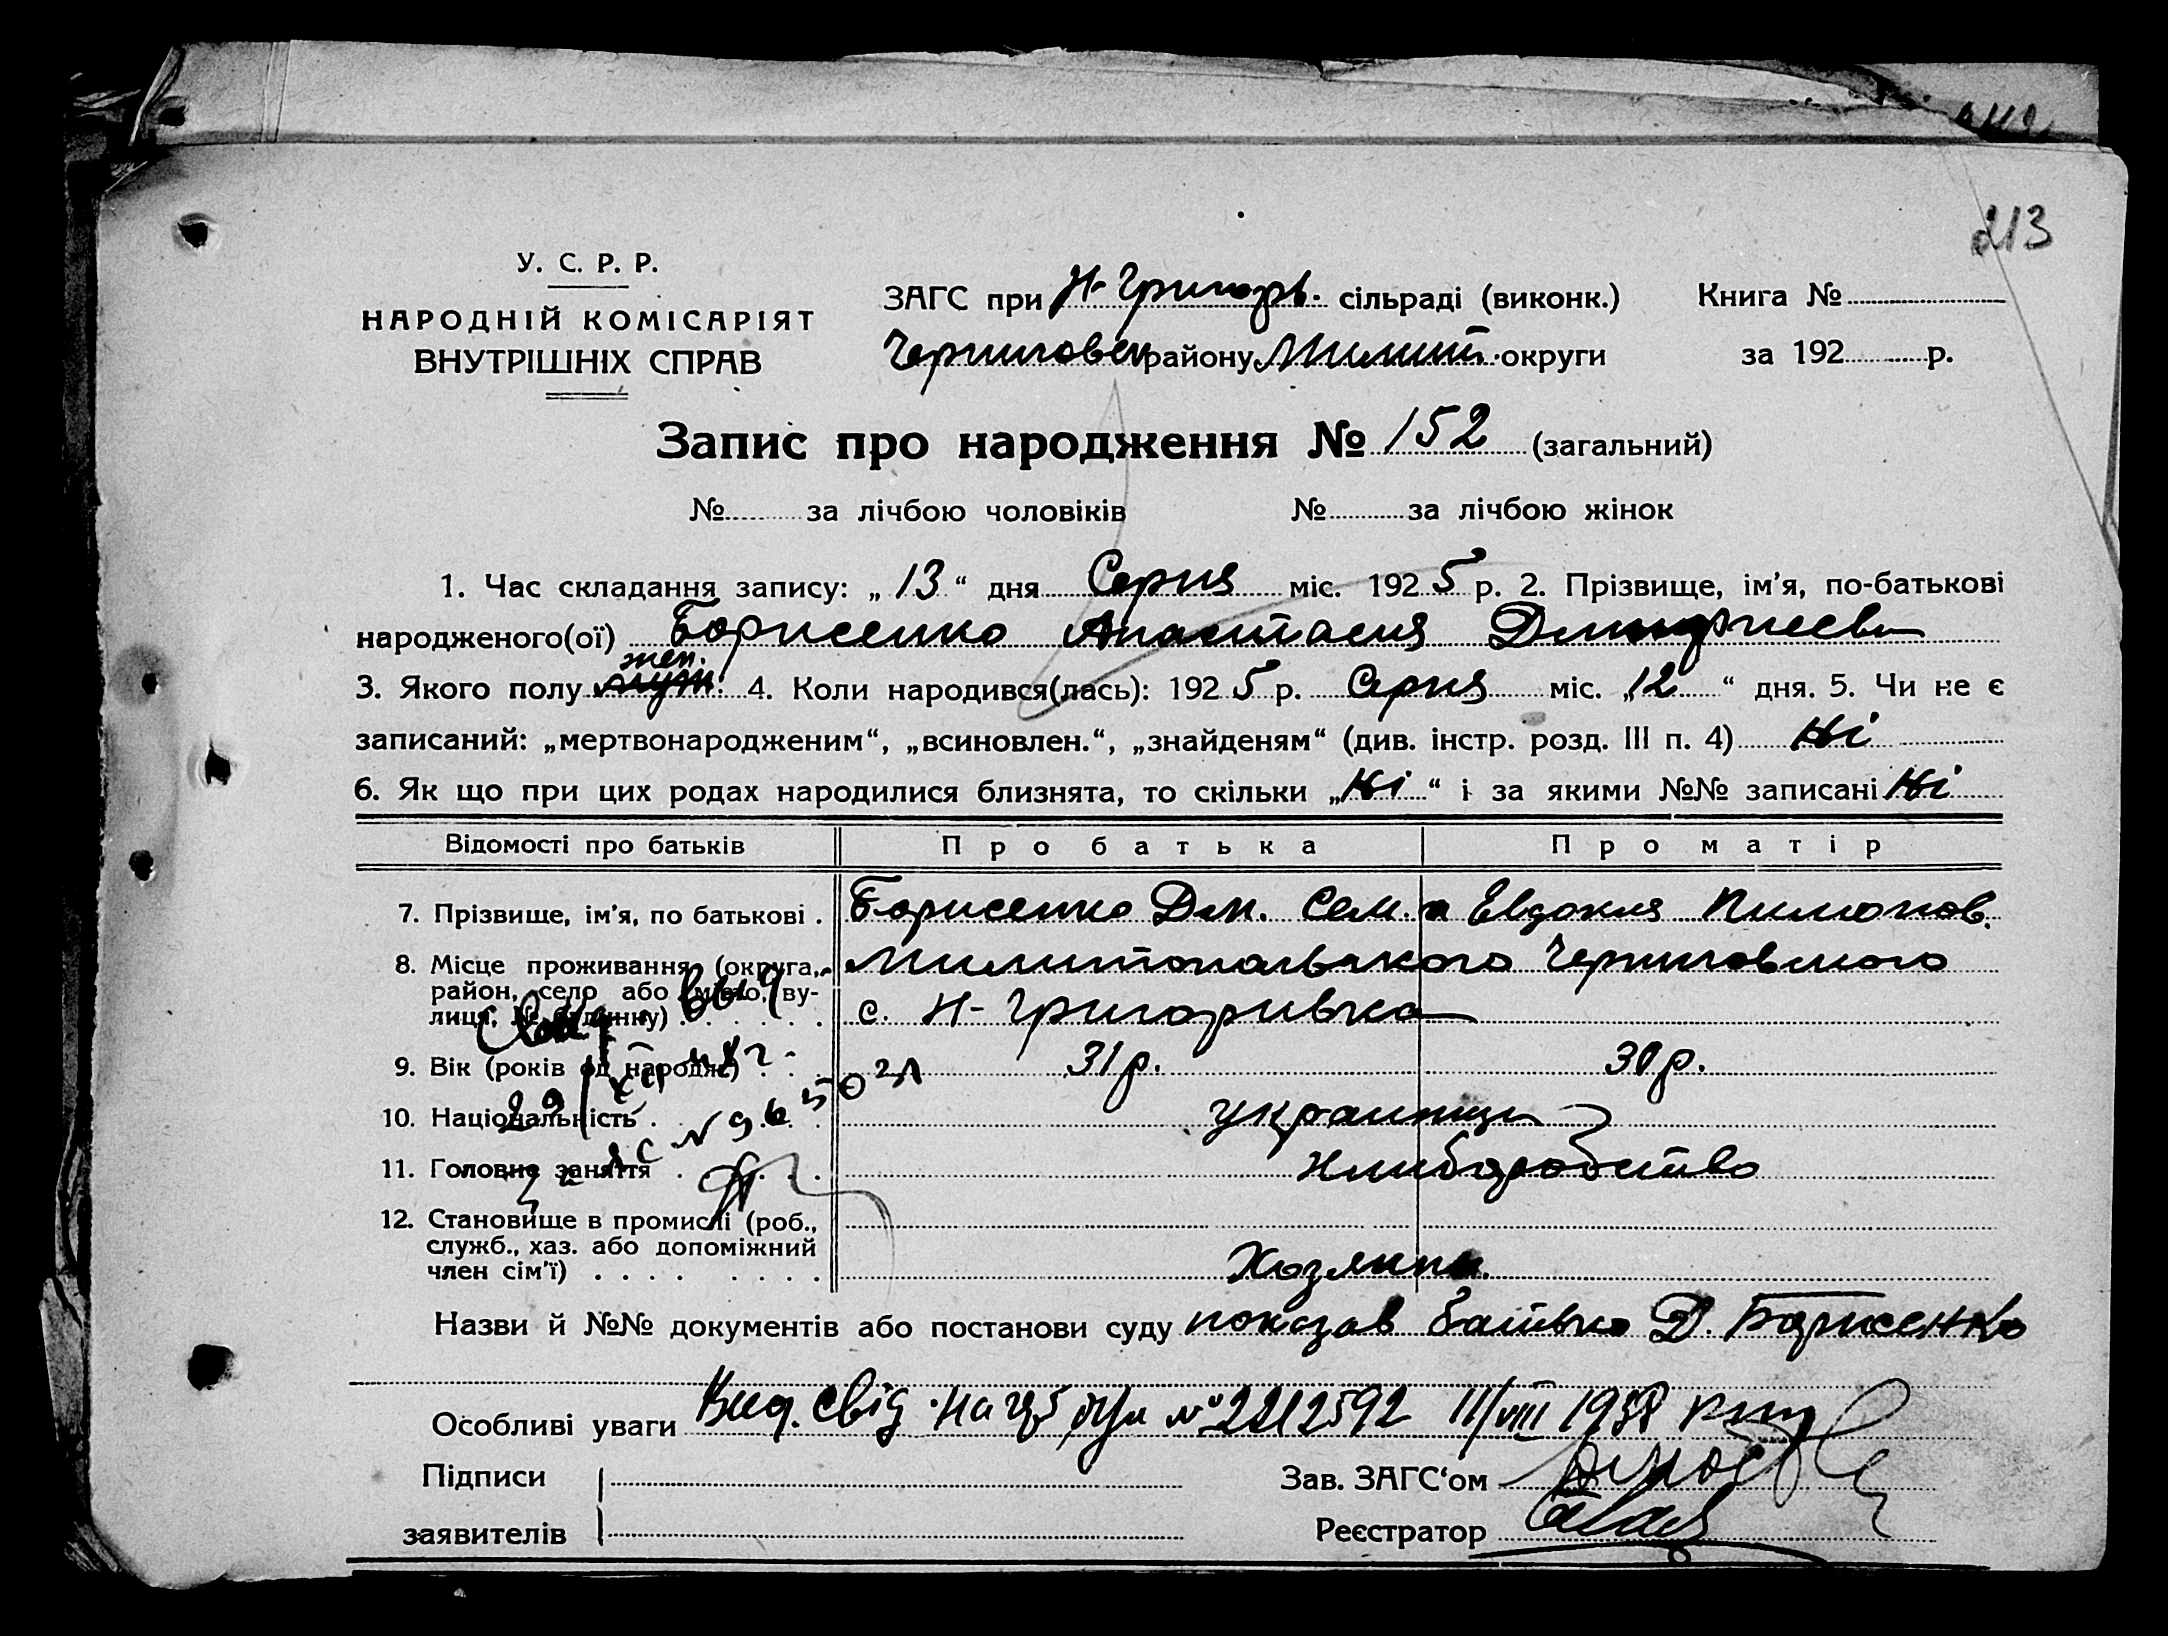 213
У. С. Р. Р.
НАРОДНІЙ КОМІСАРІЯТ
ВНУТРІШНІХ СПРАВ
ЗАГС при Н-Григорь. сільраді (виконк.) Книга №
Черниговск району Милит. округи за 192 р.
Запис про народження № 152 (загальний)
№ за лічбою чоловіків № за лічбою жінок
1. Час складання запису: „13“ дня Серпня міс. 1925 р. 2. Прізвище, ім’я, по-батькові
народженого(ої) Борисенко Анастасия
жен.
3. Якого полу муж. 4. Коли народився(лась): 1925 р. Серпня міс. „12“ дня. 5. Чи не є
записаний: „мертвонародженим“, „всиновлен.“, „знайденям“ (див. інстр. розд. III п. 4) Ні
6. Як що при цих родах народилися близнята, то скільки „Ні“ і за якими №№ записані Ні
Відомості про батьків Про батька Про матір
7. Прізвище, ім’я, по батькові . Борисенко Дм. Сем. Евдокия
8. Місце проживання (округа, Милитопольского Черниговского
район, село або місто, ву-
лиця, № будинку) . . . . . . с. Н-Григоривка
9. Вік (років од народж.) . . . 31 р. 30 р.
10. Національність . . . . украинци
11. Головне заняття . . . . Хлибаробство
12. Становище в промислі (роб.,
служб., хаз. або допоміжний
член сім’ї) . . . . . . . . Хозяини
Назви й №№ документів або постанови суду показав батько Д. Борисенко
Особливі уваги Вид. свід. № 2212592 11/VIII 1938
Підписи Зав. ЗАГС‘ом
заявителів Реєстратор